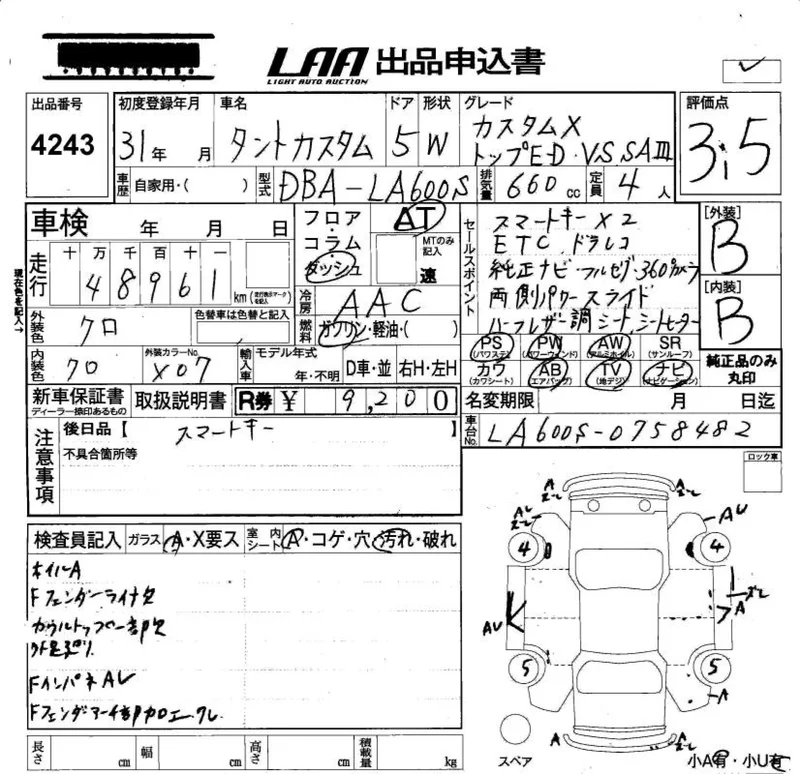 LAA 出品申込書
LIGHT AUTO AUCTION
出品番号 初度登録年月 車名 ドア 形状 グレード 評価点
4243 31年 月 タントカスタム 5 W カスタムX
トップED・VS SAⅢ 3.5
車歴 自家用・( ) 型式 DBA-LA600S 排気量 660cc 定員 4人
車検 年 月 日 フロア・コラム・ダッシュ AT
MTのみ記入
速
現在色を記入→
走行 十 万 千 百 十 一
4 8 9 6 1 km (走行表示マークを記入)
冷房 AAC
燃料 ガソリン・軽油・( )
外装色 クロ 色替車は色替と記入
内装色 クロ 外装カラーNo. X07 輸入車 モデル年式
年・不明 D車・並 右H・左H
セールスポイント
スマートキーX2
ETC ドラレコ
純正ナビ・フルセグ・360°カメラ
両側パワースライド
ハーフレザー調シート、シートヒーター
[外装]
B
[内装]
B
PS (パワステ) PW (パワーウインド) AW (アルミホイル) SR (サンルーフ)
カワ (カワシート) AB (エアバッグ) TV (地デジ) ナビ (ナビゲーション)
純正品のみ
丸印
新車保証書 取扱説明書 R券 ¥ 9,200
ディーラー捺印あるもの
名変期限 月 日迄
車台No. LA600S-0758482
注意事項
後日品【 スマートキー 】
不具合箇所等
ロック車
検査員記入 ガラス A・X要ス 室内シート A・コゲ・穴・汚れ・破れ
ホイルA
Fフェンダーライナ欠
カウルトップ一部欠
Fインパネ AU
A A
AU AU
4 4
AU A
5 5
A
A A
長さ cm 幅 cm 高さ cm 積載量 kg
スペア
小A有・小U有